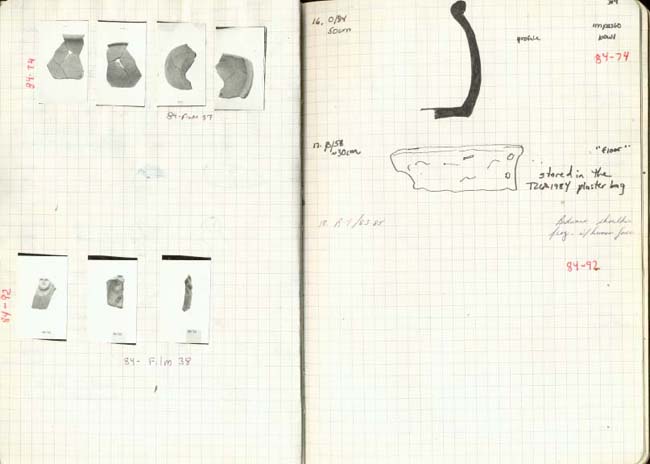 84-74
84-Film 37
84-92
84- Film 38
16. O/84
50cm
profile
impasto
bowl
84-74
17. B/58
~30cm
"floor"
stored in the
plaster bag
18.
shoulder
frag. w/human face
84-92